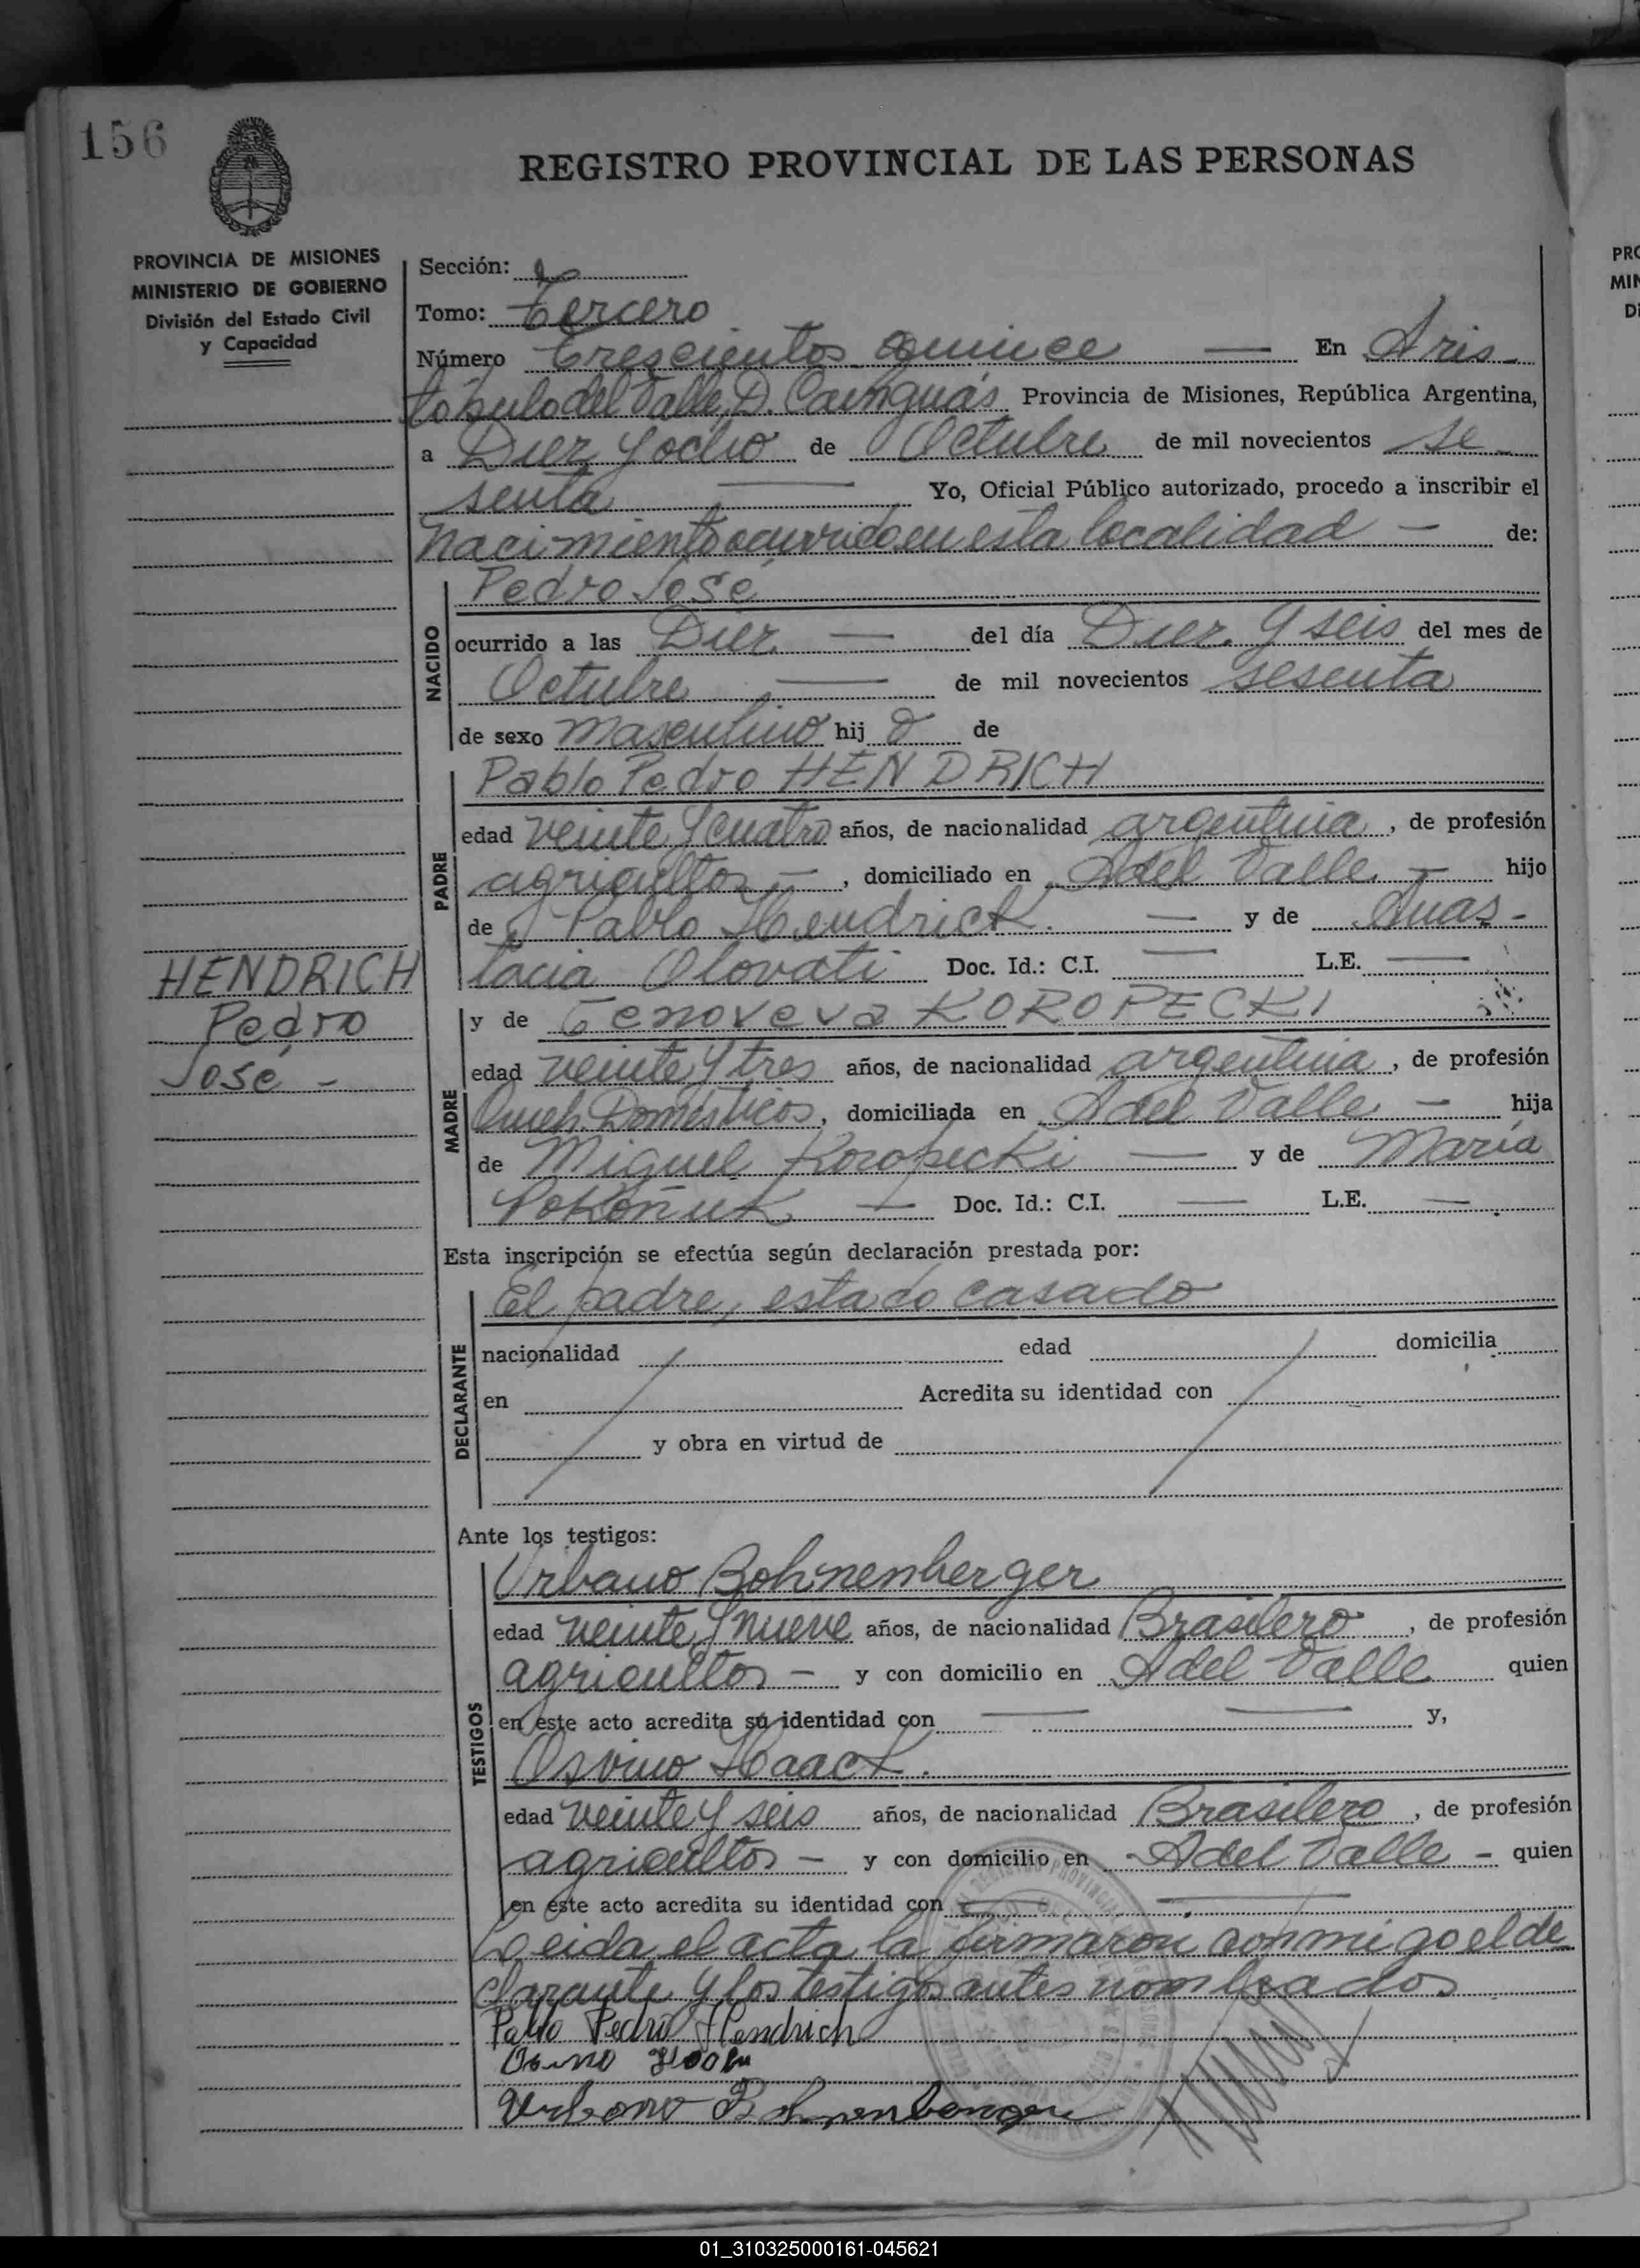 156
REGISTRO PROVINCIAL DE LAS PERSONAS
PROVINCIA DE MISIONES
MINISTERIO DE GOBIERNO
División del Estado Civil
y Capacidad
Sección:
Tomo: Tercero
Número Trescientos Quince — En Aris-
tóbulo del Valle, D. Cainguás Provincia de Misiones, República Argentina,
a Diez y ocho de Octubre de mil novecientos se
senta — Yo, Oficial Público autorizado, procedo a inscribir el
nacimiento ocurrido en esta localidad — de:
NACIDO
Pedro José
ocurrido a las Diez — del día Diez y seis del mes de
Octubre — de mil novecientos sesenta
de sexo masculino hij o de
PADRE
Pablo Pedro HENDRICH
edad veinte y cuatro años, de nacionalidad argentina, de profesión
agricultor —, domiciliado en A del Valle — hijo
de Pablo Hendrick. — y de Anas-
tacia Olovati Doc. Id.: C.I. — L.E. —
HENDRICH
Pedro
José -
MADRE
y de Genoveva KOROPECKI
edad veinte y tres años, de nacionalidad argentina, de profesión
Queh. Domésticos, domiciliada en A del Valle — hija
de Miguel Koropecki — y de María
Pokoñuk — Doc. Id.: C.I. — L.E. —
Esta inscripción se efectúa según declaración prestada por:
DECLARANTE
El padre, estado casado
nacionalidad edad domicilia
en Acredita su identidad con
y obra en virtud de
Ante los testigos:
TESTIGOS
Urbano Bohnenberger
edad veinte y nueve años, de nacionalidad Brasilero, de profesión
agricultor — y con domicilio en A del Valle quien
en este acto acredita su identidad con — — y,
Osvino Haack.
edad veinte y seis años, de nacionalidad Brasilero, de profesión
agricultor — y con domicilio en A del Valle - quien
en este acto acredita su identidad con — —
Leida el acta la firmaron conmigo el de
clarante y los testigos antes nombrados
Pablo Pedro Hendrich
Urbano Bohnenberger
01_310325000161-045621
PRO
MIN
Di